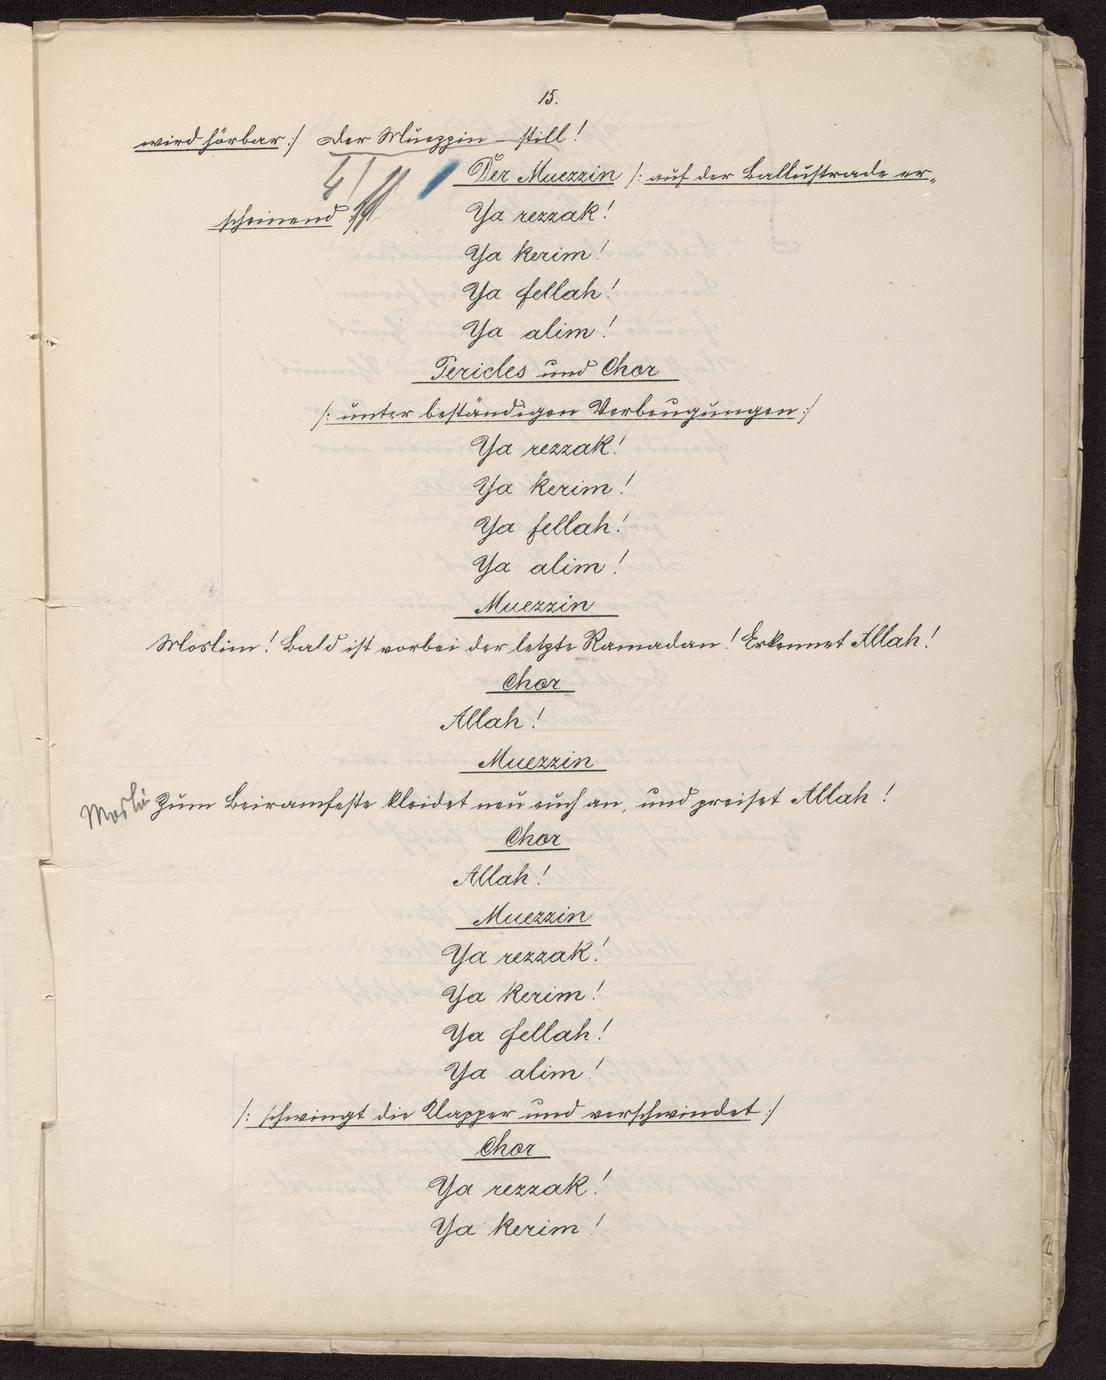 15.
wird hörbar :/ Der Muezzin – still!
Der Muezzin /: auf der Ballustrade er-
scheinend :/
Ya rezzak!
Ya kerim!
Ya fellah!
Ya alim!
Pericles und Chor
/: unter beständigen Verbeugungen :/
Ya rezzak!
Ya kerim!
Ya fellah!
Ya alim!
Muezzin
Moslim! Bald ist vorbei der letzte Ramadan! Erkennet Allah!
Chor
Allah!
Muezzin
Zum Beiramfeste kleidet neu euch an, und preiset Allah!
Chor
Allah!
Muezzin
Ya rezzak!
Ya kerim!
Ya fellah!
Ya alim!
/: schwingt die Klapper und verschwindet :/
Chor
Ya rezzak!
Ya kerim!